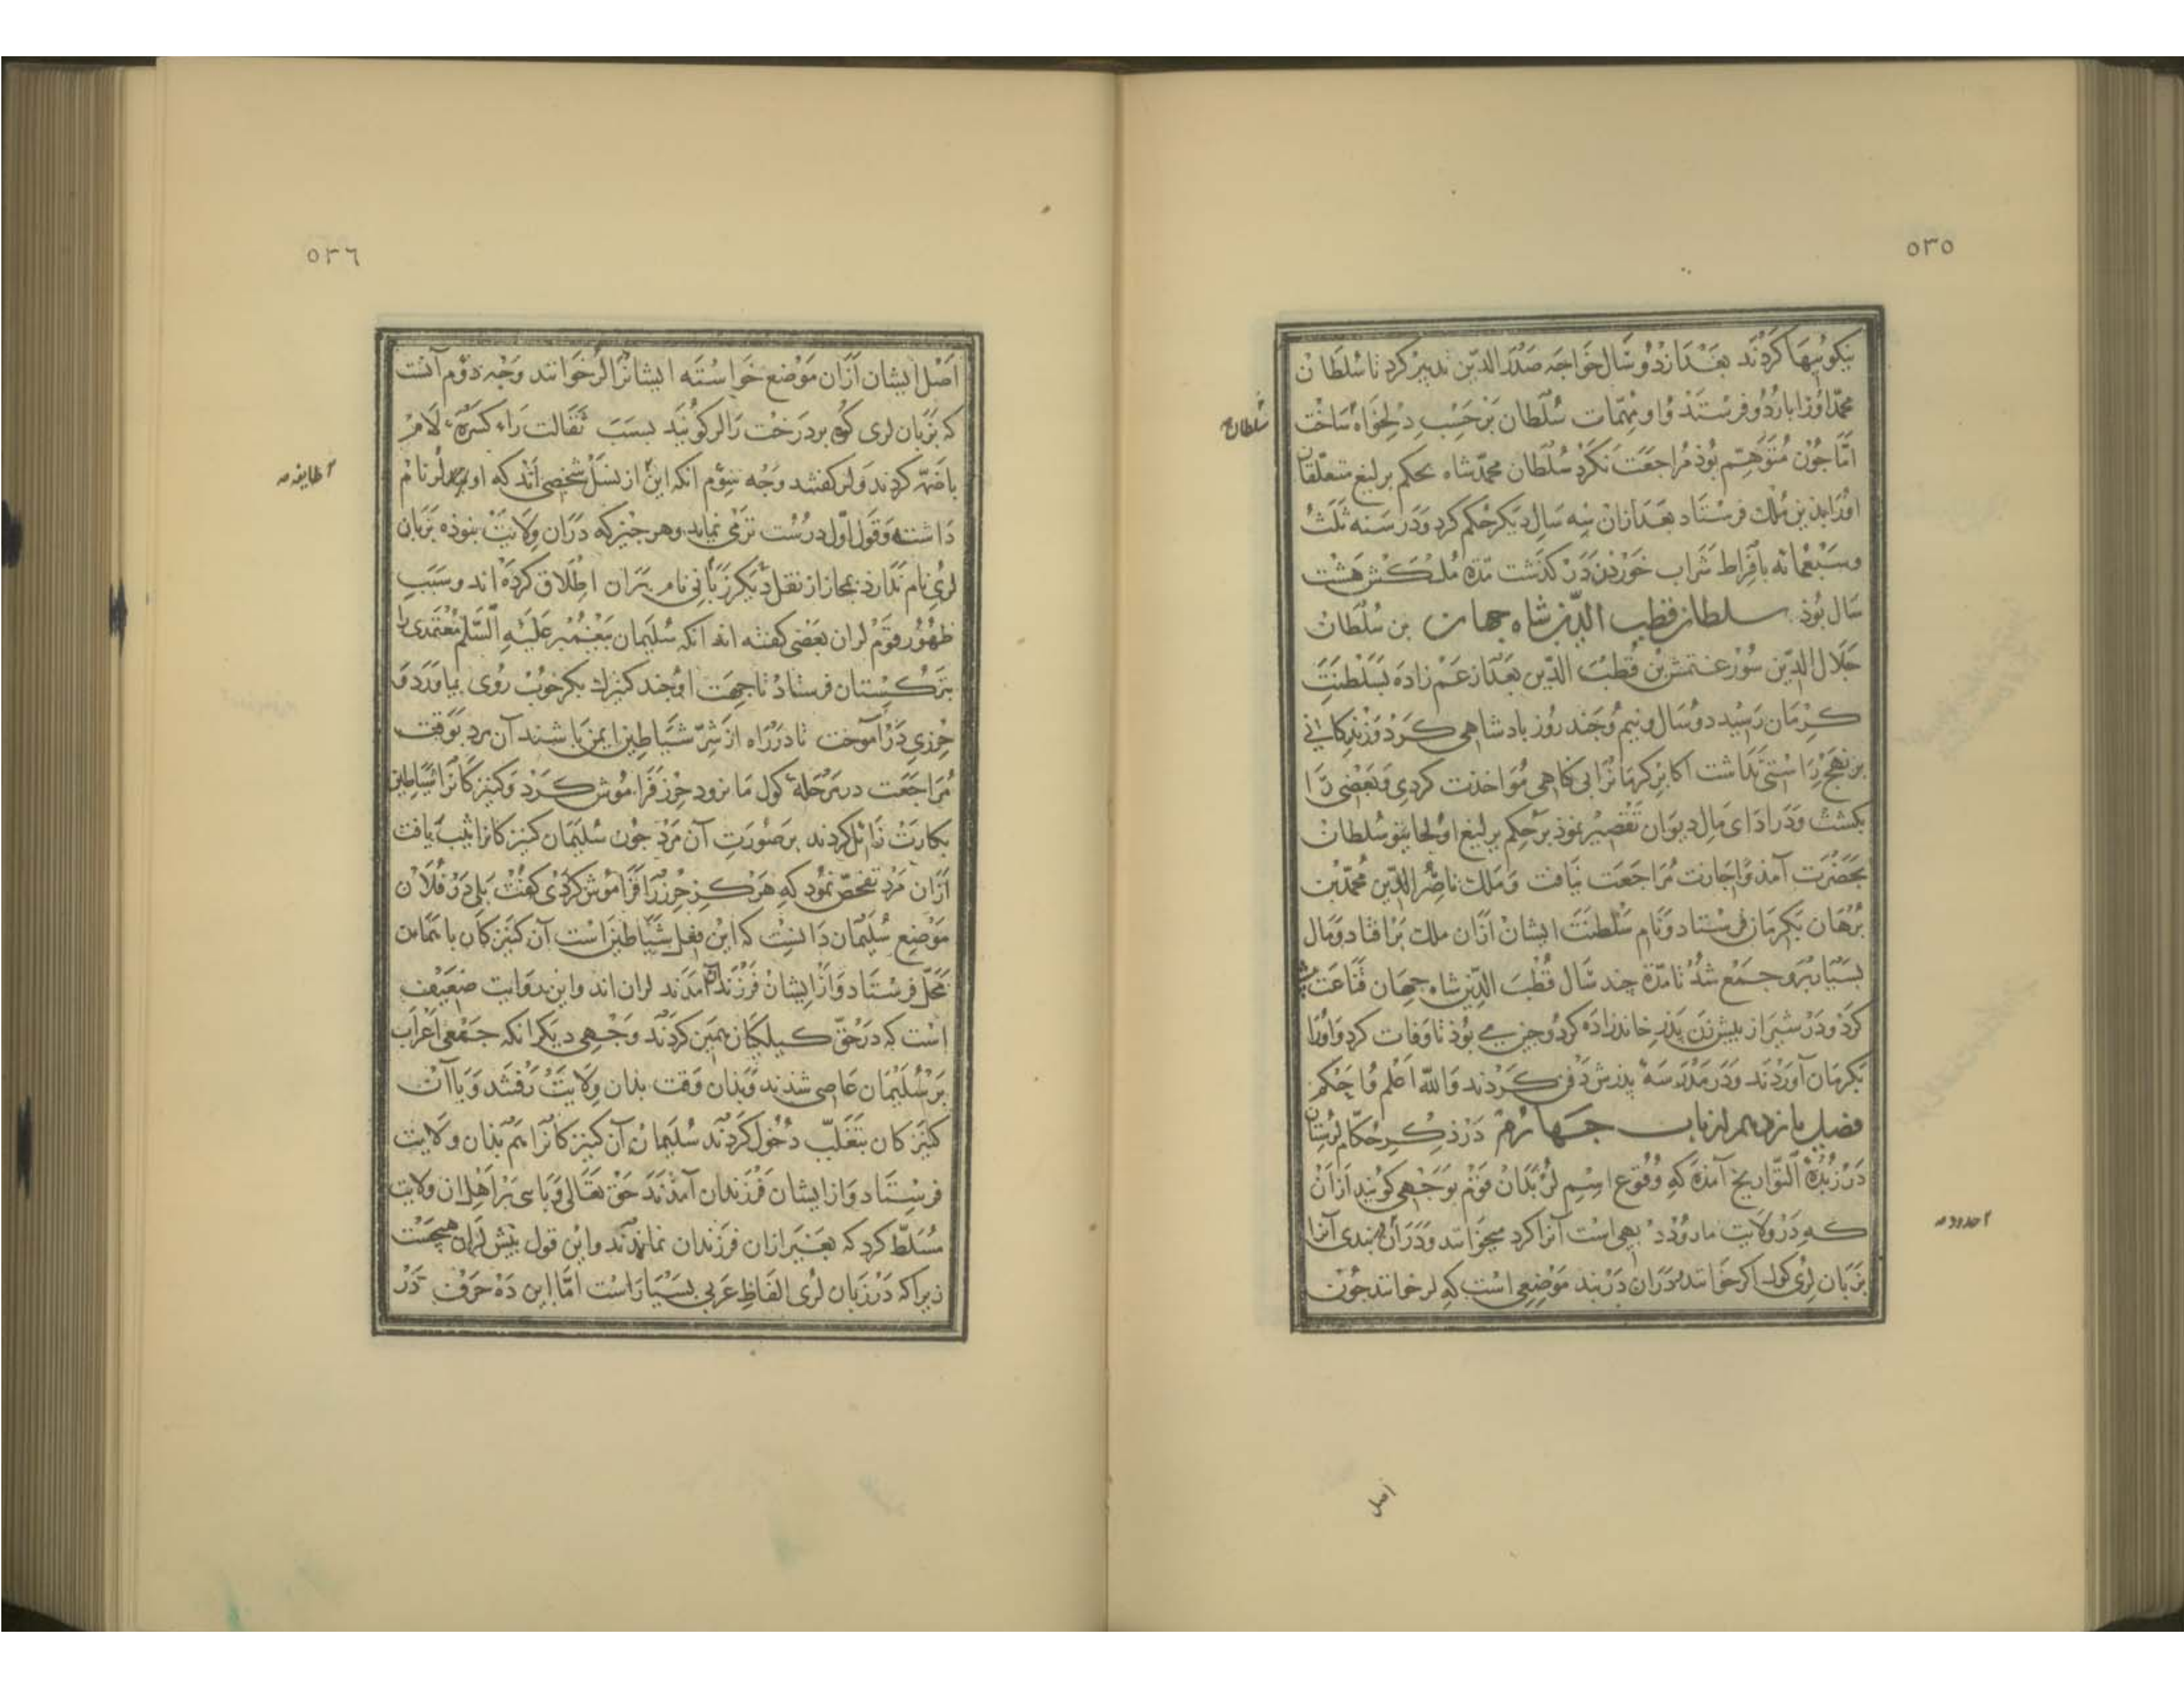 ٥٣٥
نیکوییها کردند بعد از دو سال خواجه صدر الدین تدبیر کرد تا سلطان
محمد او را باردو فرستد و او مهمات سلطان بر حسب دلخواه ساخت
سلطان
اما جون متوهم بوذ مراجعت نکرد سلطان محمدشاه بحکم یرلیغ متعلقان
او را بذین ملک فرستاد بعد ازان سه سال دیکر حکم کرد و در سنه ثلث
وسبعمائه بافراط شراب خوردن در کذشت مدة ملکش هشت
سال بوذ سلطان قطب الدین شاه جهان بن سلطان
جلال الدین سورغتمش بن قطب الدین بعد از عم زاده بسلطنت
کرمان رسید دو سال و نیم و جند روز بادشاهی کرد و زندکانی
بر نهج راستی نداشت اکابر کرمانرا بی کناهی مؤاخذت کردی و بعضی را
بکشت و در ادای مال دیوان تقصیر نمود بر حکم یرلیغ اولجایتو سلطان
بحضرت آمذ و اجازت مراجعت نیافت و ملک ناصر الدین محمد بن
برهان بکرمان فرستاد و نام سلطنت ایشان ازان ملک بر افتاد و مال
بسیار برو جمع شد تا مدة چند سال قطب الدین شاه جهان قناعت
کرد و در شیراز بیش زن پذر خاندزاده کرد و جیزی بوذ تا وفات کرد و او را
بکرمان آوردند و در مدرسهٔ پدرش دفن کردند والله اعلم و احکم
فصل یازدهم از باب جهارم در ذکر حکام لرستان
در زبدة التواریخ آمذه که وقوع اسم لر بذان قوم بوجهی کویند ازان
که در ولایت مانرود دیهی است آنرا کرد میخوانند و در آن بندی آنرا
بزبان لری کول اکر خوانند و دران دربند موضعی است که لر خوانند جون
اصل
٥٣٦
اصل ایشان ازان موضع خواسته ایشانرا لر خوانند وجه دوم آنست
که بزبان لری کوه بر درخت را لر کویند بسبب ثقالت راء کسرهٔ لام
باضمه کردند و لر کفتند وجه سوم آنکه این از نسل شخصی اند که او لر نام
داشته و قول اول درست تر می نماید و هر جیز که دران ولایت نبوذه بزبان
لری نام ندارد بمجاز از نقل دیکر زبانی نام بران اطلاق کرده اند و سبب
ظهور قوم لران بعضی کفته اند آنکه سلیمان بیغمبر علیه السلم معتمدی را
بترکستان فرستاد تا جهت او جند کنیزک بکر خوب روی بیاورد و
حرزی در آموخت تا در راه از شر شیاطین ایمن باشند آن مرد بوقت
مراجعت در مرحلهٔ کول مانرود حرز فراموش کرد و کنیزکانرا شیاطین
بکارت زائل کردند بر صورت آن مرد جون سلیمان کنیزکانرا ثیب یافت
ازان مرد تفحص نمود که هرکز حرز را فراموش کردی کفت بلی در فلان
موضع سلیمان دانست که این فعل شیاطین است آن کنیزکان با همان
محل فرستاد و از ایشان فرزندان آمدند لران اند و این روایت ضعیف
است که در حق کیلکان همین کردند و جهی دیکر انکه جمعی اعراب
بر سلیمان عاصی شدند و بذان وقت بذان ولایت رفتند و با آن
کنیزکان بتغلب دخول کردند سلیمان آن کنیزکانرا هم بذان ولایت
فرستاد و از ایشان فرزندان آمدند حق تعالی وبایی بر اهل ان ولایت
مسلط کرد که بغیر ازان فرزندان نماندند و این قول بیش لران هیچست
زیرا که در زبان لری الفاظ عربی بسیار است اما این ده حرف در